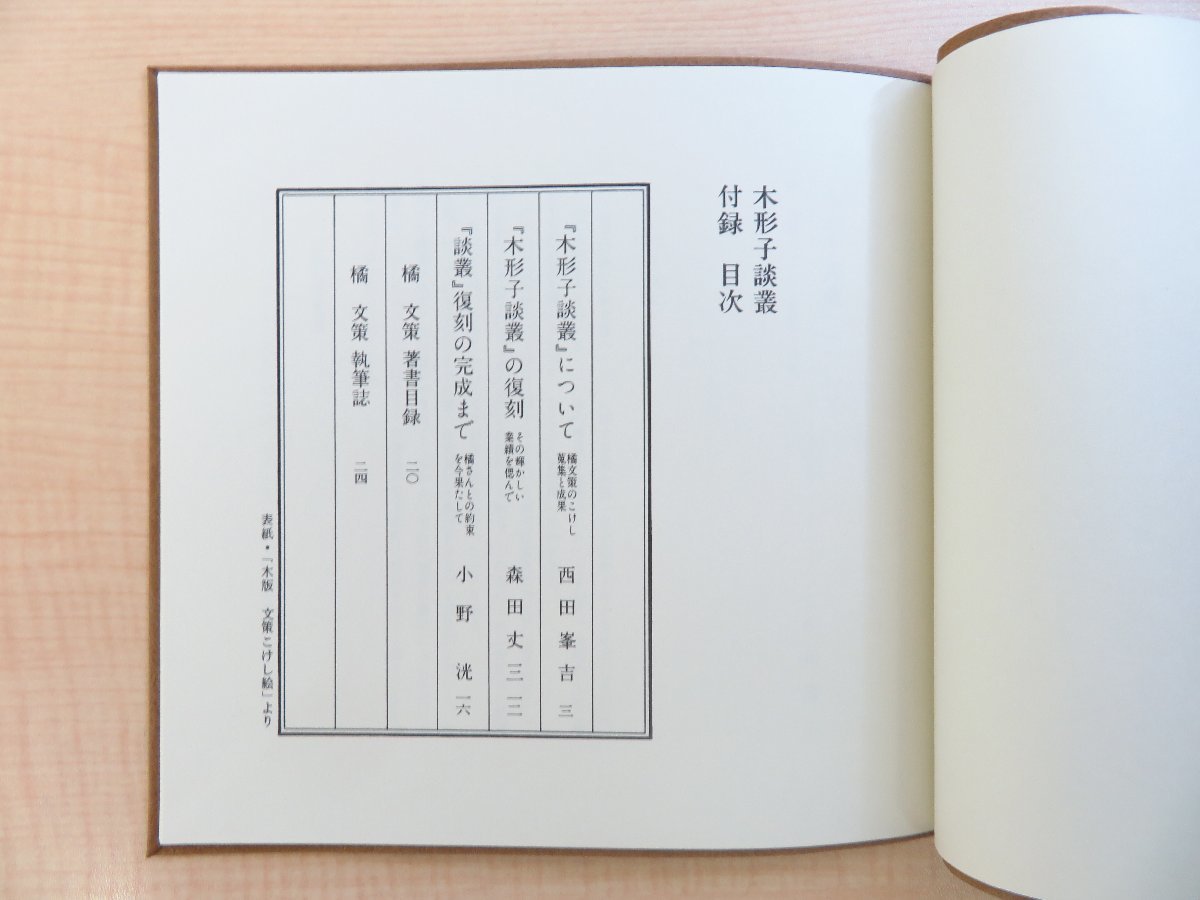 木形子談叢
付録　目次
『木形子談叢』について　橘文策のこけし蒐集と成果　西田峯吉　三
『木形子談叢』の復刻　その輝かしい業績を偲んで　森田丈三　一二
『談叢』復刻の完成まで　橘さんとの約束を今果たして　小野　洸　一六
橘　文策　著書目録　二〇
橘　文策　執筆誌　二四
表紙・「木版　文策こけし絵」より